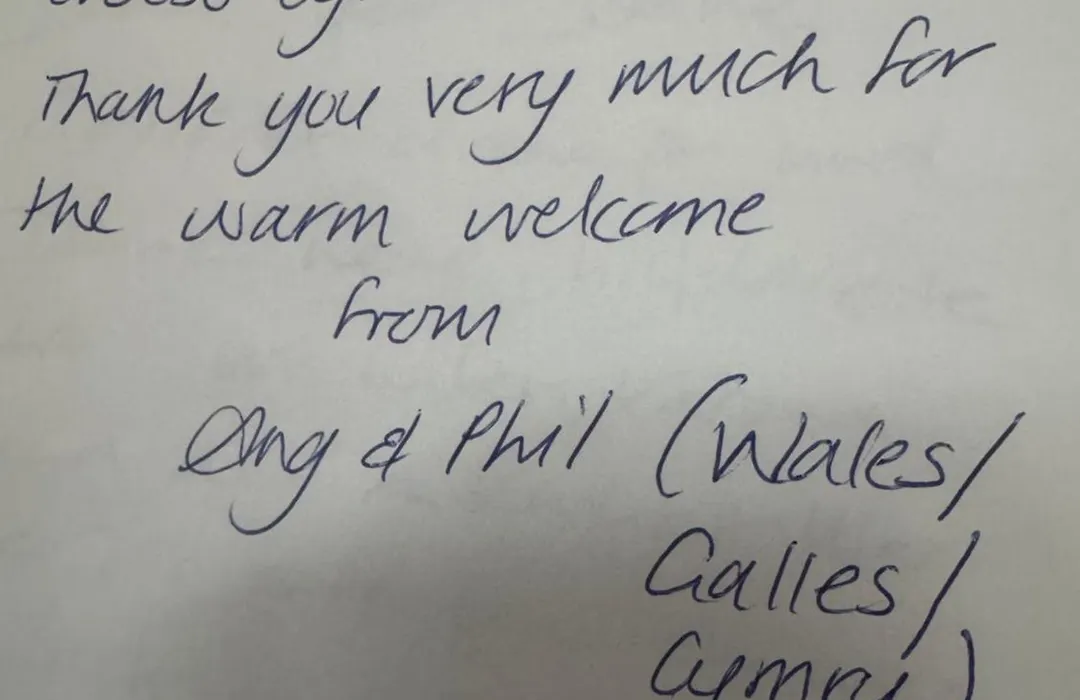 Thank you very much for
the warm welcome
from
Ang & Phil (Wales/
Galles/
Cymru)